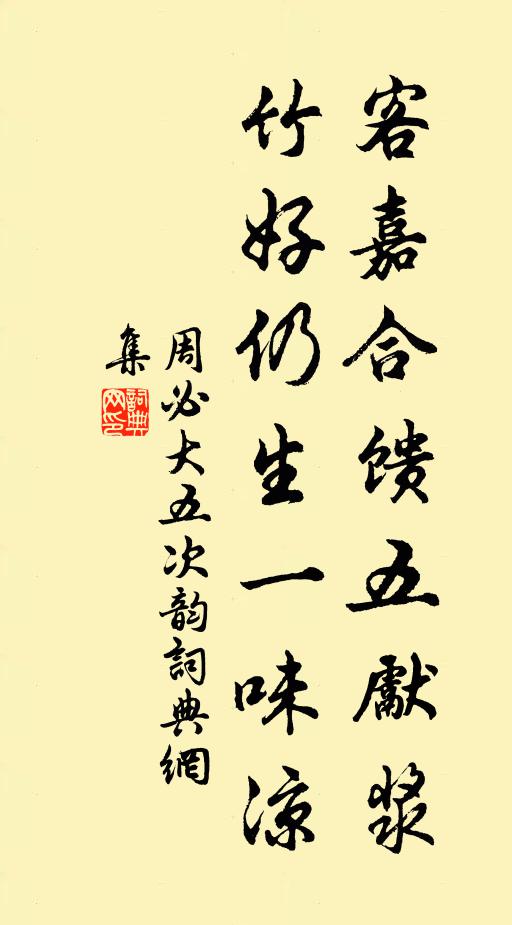 客嘉合馈五獻漿
竹好仍生一味涼
周必大五次韵詞典網
集
詞典
网印